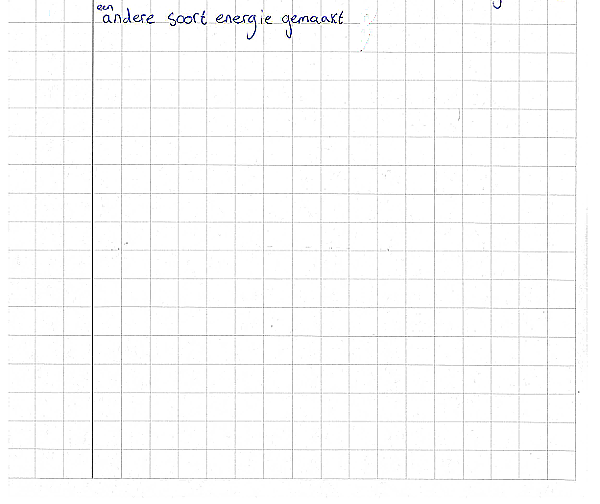 een
andere soort energie gemaakt